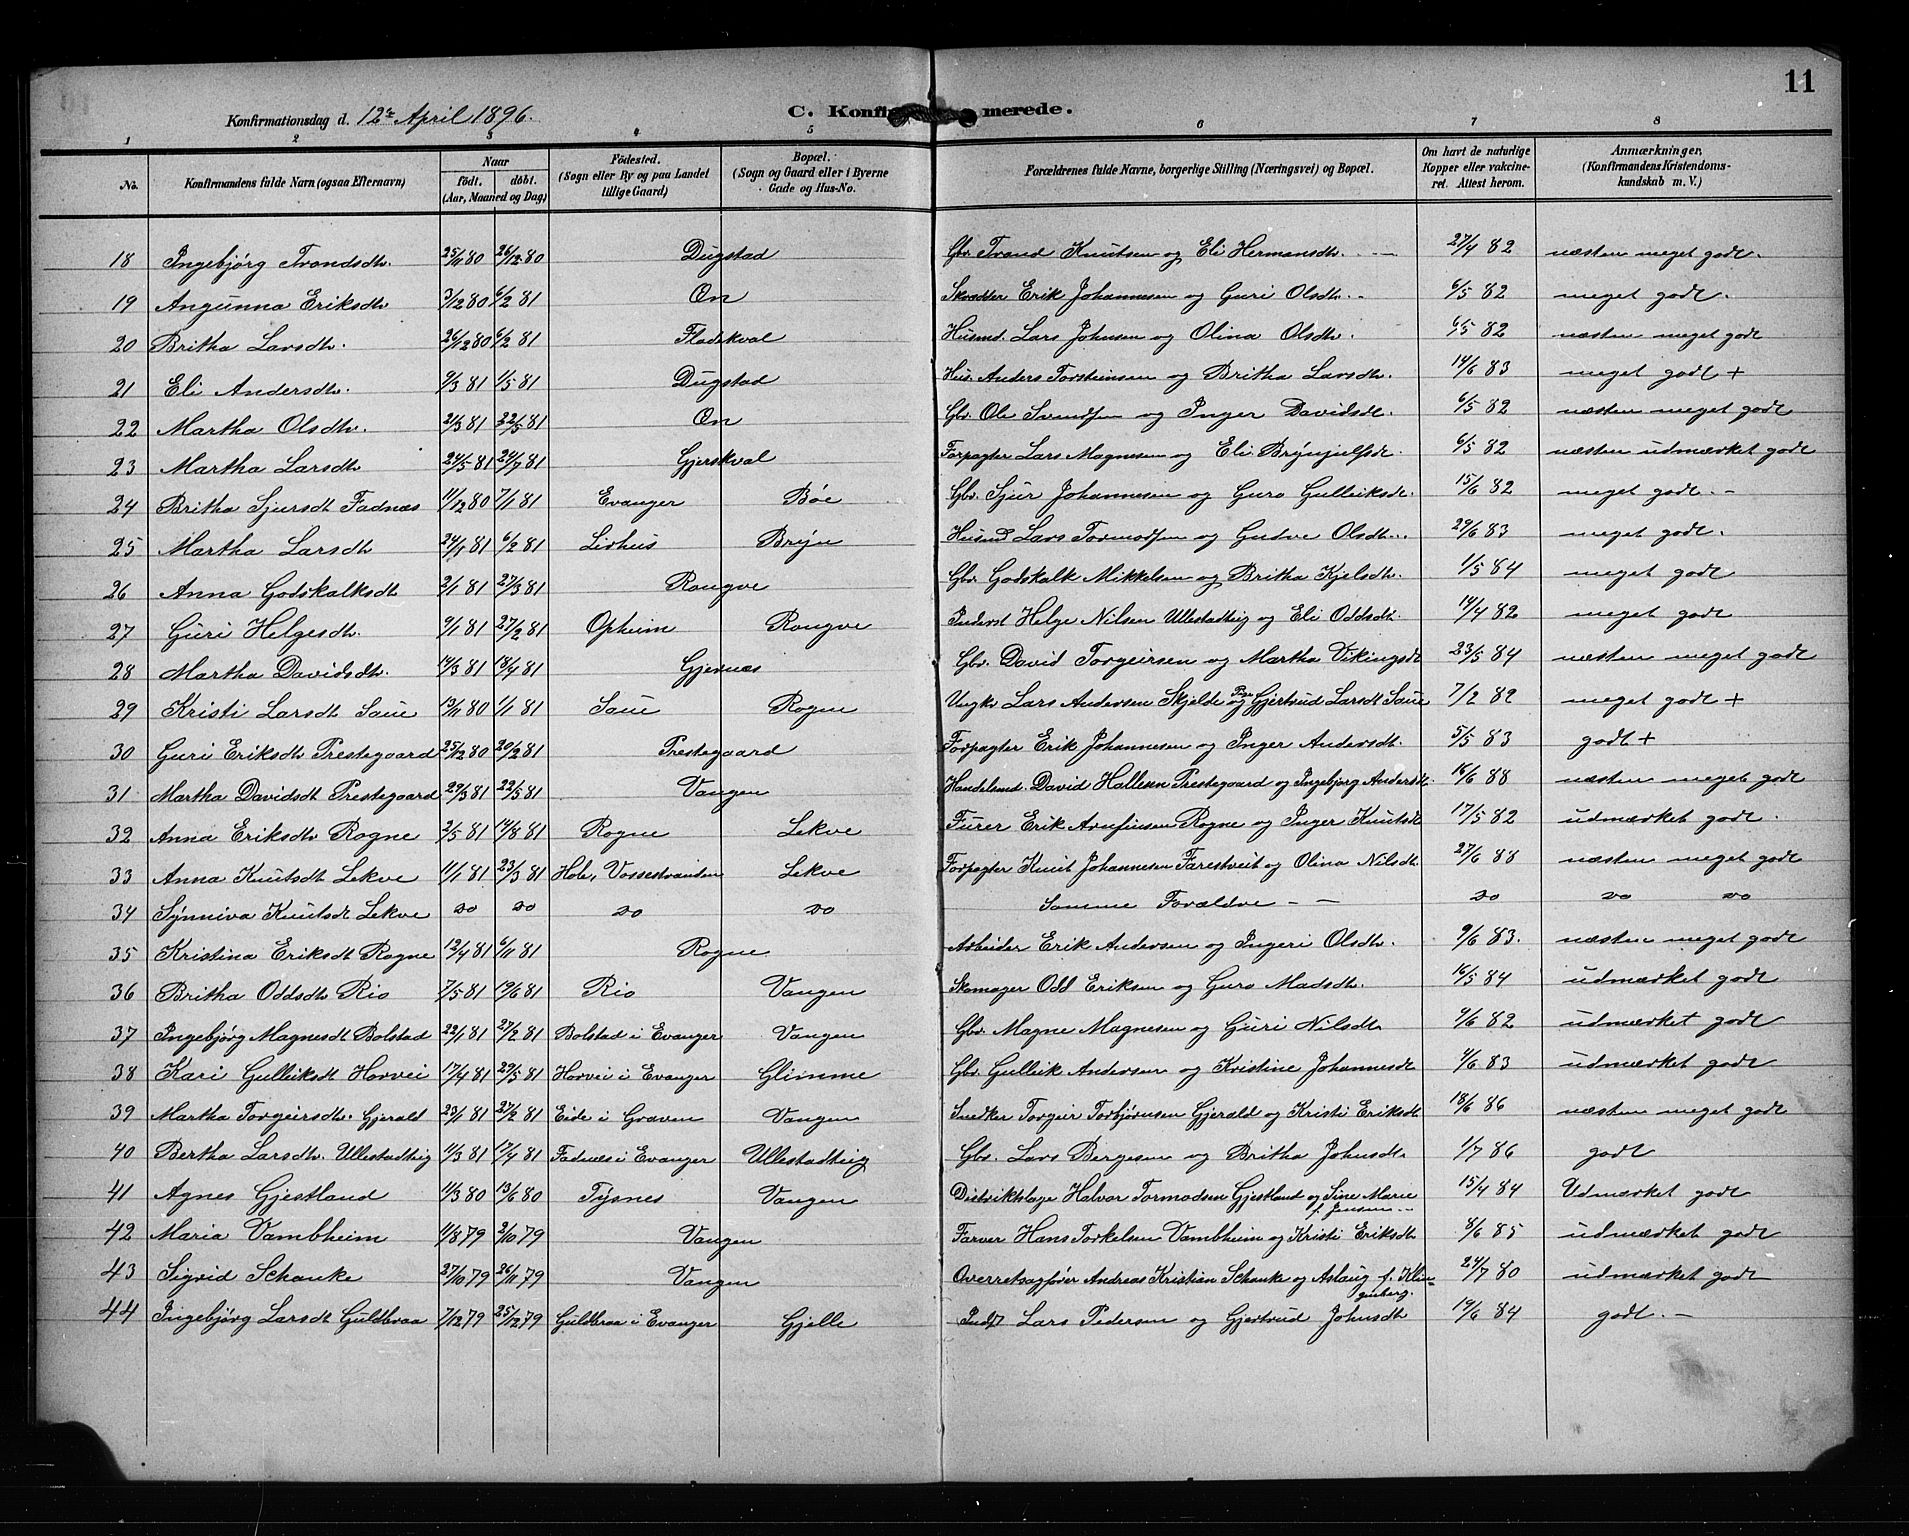 11
Konfirmationsdag d. 12te April 1896. C. Konfirmerede.
1 2 3 4 5 6 7 8
No. Konfirmandens fulde Navn (ogsaa Efternavn) Naar født. døbt. (Aar, Maaned og Dag) Födested. (Sogn eller By og paa Landet tillige Gaard) Bopæl. (Sogn og Gaard eller i Byerne Gade og Hus-No. Forældrenes fulde Navne, borgerlige Stilling (Næringsvei) og Bopæl. Om havt de naturlige Kopper eller vakcineret. Attest herom. Anmærkninger, (Konfirmandens Kristendomskundskab m. V.)
18 Ingebjørg Trondsdtr. 25/11 80 26/12 80 Dugstad Gbr. Trond Knutsen og Eli Hermansdtr. 27/4 82 næsten meget godt.
19 Angunna Eriksdtr 3/12 80 6/2 81 On Skrædder Erik Johannesen og Guri Olsdtr. 6/5 82 meget godt.
20 Britha Larsdtr. 26/12 80 6/2 81 Fladskval Husmd. Lars Johnsen og Olina Olsdtr. 6/5 82 næsten meget godt
21 Eli Andersdtr. 9/3 81 1/5 81 Dugstad Hus. Anders Torsteinsen og Britha Larsdtr. 14/6 83 meget godt +
22 Martha Olsdtr. 2/3 81 22/5 81 On Gbr. Ole Svendsen og Inger Davidsdt. 6/5 82 næsten meget godt
23 Martha Larsdtr 24/5 81 24/7 81 Gjerskval Forpagter Lars Magnesen og Eli Brynjulfsdt. 6/5 82 næsten udmærket godt
24 Britha Sjursdt Fadnæs 11/12 80 7/1 81 Evanger Bøe Gbr. Sjur Johannesen og Guro Gulleiksdt. 15/6 82 meget godt. -
25 Martha Larsdtr 24/1 81 6/2 81 Lirhus Bryn Husmd Lars Tormodsen og Gudve Olsdtr. 29/6 83 meget godt.
26 Anna Godskalksdt 2/1 81 27/3 81 Rongve Gbr. Godskalk Mikkelsen og Britha Kjelsdtr. 1/5 84 meget godt
27 Guri Helgesdtr. 9/1 81 27/2 81 Opheim Rongve Inderst Helge Nilsen Ullestadteig og Eli Oddsdt. 14/4 82 meget godt
28 Martha Davidsdtr. 14/3 81 18/4 81 Gjernæs Gbr. David Torgeirsen og Martha Vikingsdt 23/5 84 næsten meget godt
29 Kristi Larsdt Saue 13/11 80 1/1 81 Saue Rogne Ungkr Lars Andersen Skjelde og Pige Gjertrud Larsdt Saue 7/2 82 meget godt +
30 Guri Eriksdtr Prestegaard 25/12 80 20/2 81 Prestegaard Forpagter Erik Johannesen og Inger Andersdt. 5/5 83 godt +
31 Martha Davidsdt Prestegaard 29/3 81 22/5 81 Vangen Handelsmd. David Hallesen Prestegaard og Ingebjørg Andersdt. 16/6 88 næsten meget godt
32 Anna Eriksdtr Rogne 2/5 81 14/8 81 Rogne Lekve Furer Erik Arnfinsen Rogne og Inger Knutsdt 17/5 82 udmærket godt.
33 Anna Knutsdt Lekve 11/1 81 23/3 81 Hole, Vossestranden Lekve Forpagter Knut Johannesen Farestveit og Olina Nilsdt. 27/6 88 næsten meget godt
34 Synniva Knutsdt Lekve do do do do Samme Forældre — — do do do
35 Kristina Eriksdt Rogne 12/4 81 6/11 81 Rogne Arbeider Erik Andersen og Ingeri Olsdtr. 9/6 83. næsten meget godt
36 Britha Oddsdtr Rio 7/5 81 19/6 81 Rio Vangen Skomager Odd Eriksen og Guro Madsdtr. 16/5 84 udmærket godt
37 Ingebjørg Magnesdt Bolstad 22/1 81 27/2 81 Bolstad i Evanger Vangen Gbr. Magne Magnesen og Guri Nilsdt. 9/6 82 udmærket godt
38 Kari Gulleiksdt Horvei 17/4 81 29/5 81 Horvei i Evanger Glimme Gbr. Gulleik Andersen og Kristine Johannesdt 4/6 83 udmærket godt
39 Martha Torgeirsdtr. Gjerald 23/1 81 27/2 81 Eide i Graven Vangen Snedker Torgeir Torbjørnsen Gjerald og Kristi Eriksdt 18/6 86 næsten meget godt
40 Bertha Larsdtr. Ullestadteig 11/3 81 17/4 81 Fadnæs i Evanger Ullestadteig Gbr. Lars Bergesen og Britha Johnsdt. 1/7 86 godt
41 Agnes Gjestland 11/3 80 13/6 80 Tysnes Vangen Distriktslæge Halvor Tormodsen Gjestland og Sine Marie f. Jensen 15/4 84 Udmærket godt
42 Maria Vambheim 11/8 79 3/10 79 Vangen Farver Hans Torkelsen Vambheim og Kristi Eriksdt 8/6 85 udmærket godt
43 Sigrid Schanke 27/10 79 26/11 79 Vangen Overretsagfører Andreas Kristian Schanke og Aslaug f. Klingenberg. 24/7 80 udmærket godt
44 Ingebjørg Larsdt Guldbraa 7/12 79 25/12 79 Guldbraa i Evanger Gjelle Indst Lars Pedersen og Gjertrud Johnsdt 19/6 84 godt. -